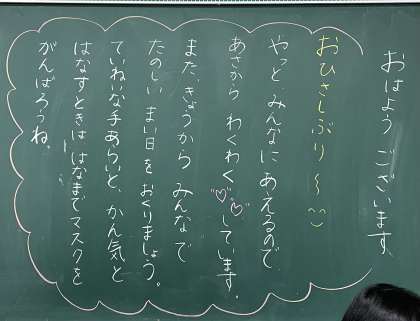 おはようございます、
おひさしぶり～
やっと、みんなにあえるので
あさからわくわくしています。
また、きょうからみんなで
たのしいまい日をおくりましょう。
ていねいな手あらいと、かん気と
はなすときははなまでマスクを
がんばろうね。